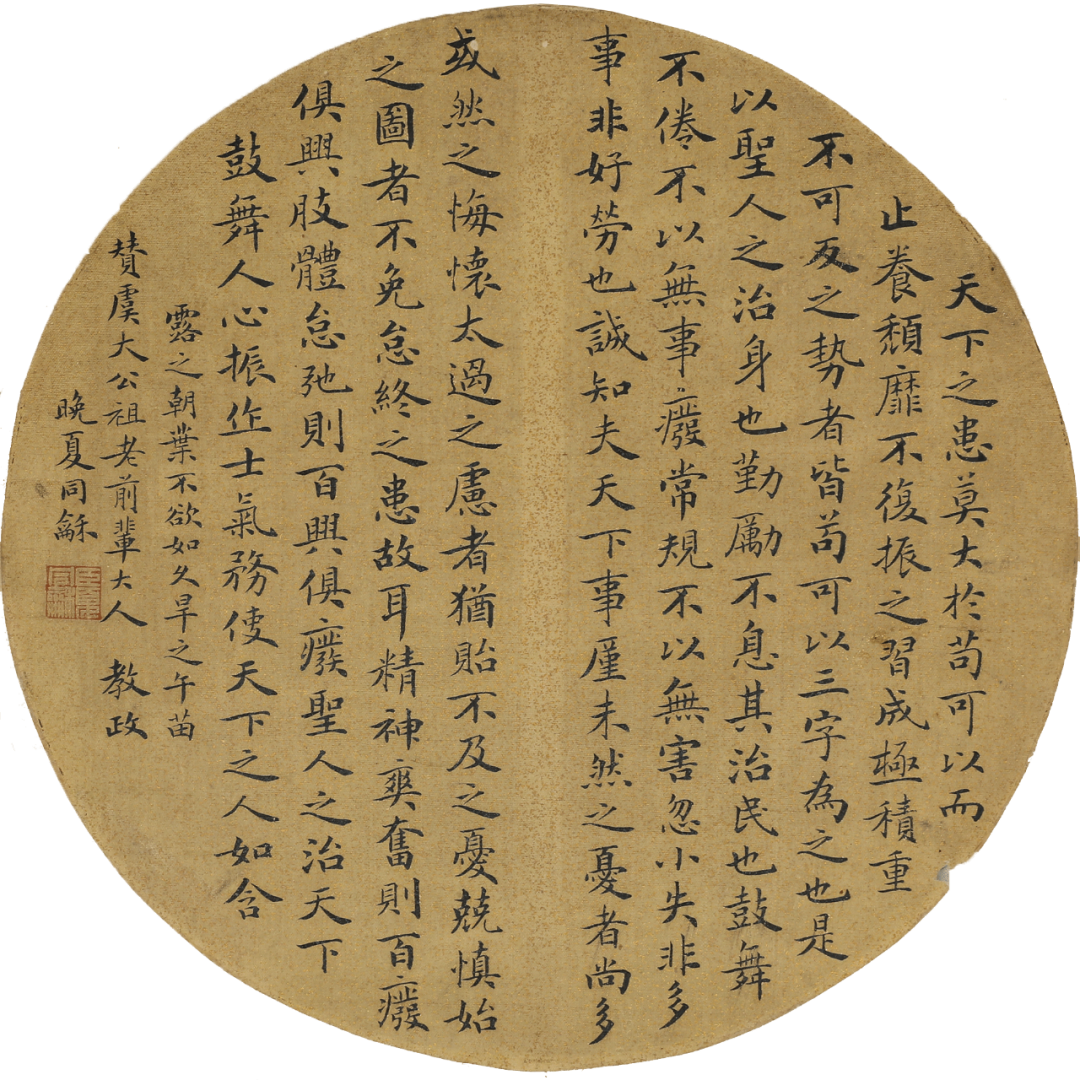 天下之患莫大於苟可以而
止養頹靡不復振之習成極積重
不可反之勢者皆苟可以三字為之也是
以聖人之治身也勤勵不息其治民也鼓舞
不倦不以無事廢常規不以無害忽小失非多
事非好勞也誠知夫天下事廑未然之憂者尚多
或然之悔懷太過之慮者猶貽不及之憂兢慎始
之圖者不免怠終之患故耳精神奭奮則百癈
俱興肢體怠弛則百興俱癈聖人之治天下
鼓舞人心振作士氣務使天下之人如含
露之朝葉不欲如久旱之午苗
贊虞大公祖老前輩大人 教政
晚夏同龢